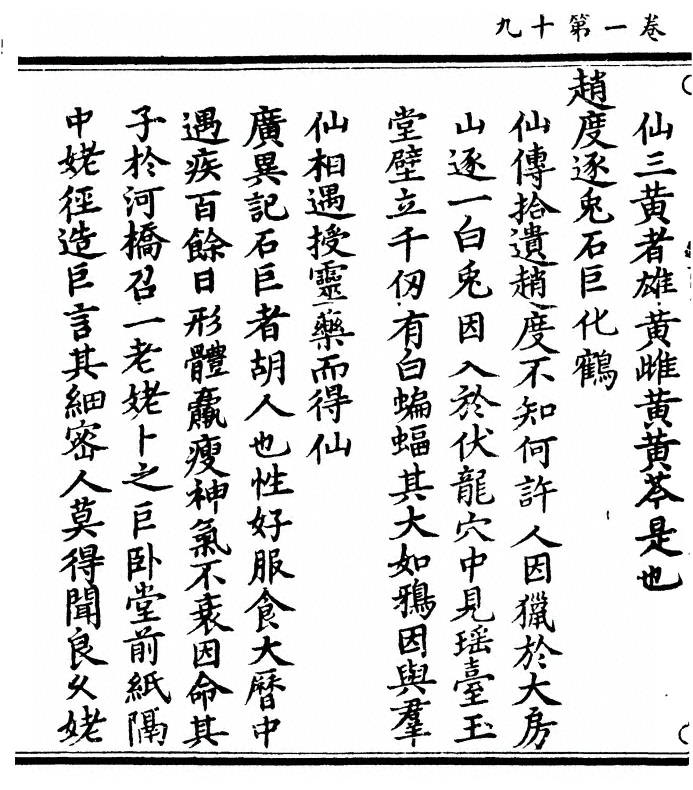 卷一第十九
仙三黃者雄黃雌黃黃芩是也
趙度逐兎石巨化鶴
仙傳拾遺趙度不知何許人因獵於大房
山逐一白兎因入於伏龍穴中見瑶臺玉
堂壁立千仞有白蝙蝠其大如鴉因與羣
仙相遇授靈藥而得仙
廣異記石巨者胡人也性好服食大曆中
遇疾百餘日形體羸瘦神氣不衰因命其
子於河橋召一老姥卜之巨卧堂前紙隔
中姥徑造巨言其細密人莫得聞良乆姥